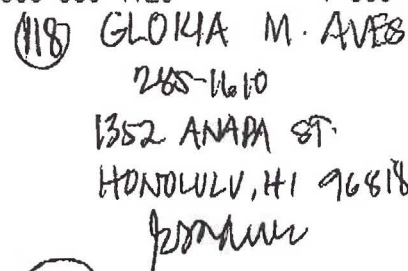 118 GLORIA M. AVES
285-1610
1352 ANAPA ST.
HONOLULU, HI 96818